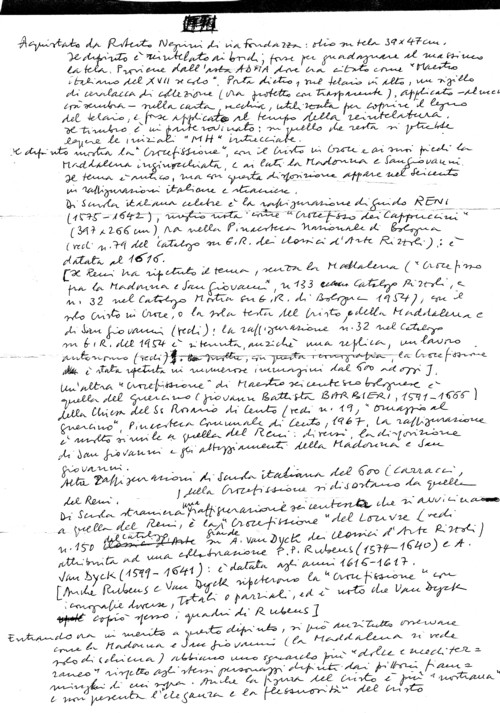 Acquistato da Roberto Negrini di via Fondazza: olio su tela 39x47 cm.
Il dipinto è reintelato ai bordi; forse per guadagnare al massimo
la tela. Proviene dall'asta dove era citato come "Maestro
italiano del XVII secolo". Porta dietro, nel telaio in alto, un sigillo
di ceralacca di collezione (ora protetto con trasparente), applicato
così sembra - sulla carta, vecchia, utilizzata per coprire il legno
del telaio, e forse applicato al tempo della reintelatura.
Il timbro è in parte rovinato: in quello che resta si potrebbe
leggere le iniziali "MH" intrecciate.
Il dipinto mostra la "Crocefissione" con il Cristo in Croce e ai suoi piedi la
Maddalena inginocchiata, e ai lati la Madonna e San Giovanni.
Il tema è antico, ma con questa disposizione appare nel Seicento
in raffigurazioni italiane e straniere.
Di Scuola italiana celebre è la raffigurazione di Guido RENI
(1575-1642), meglio nota come "Crocefisso dei Cappuccini"
(397x266 cm) ora nella Pinacoteca Nazionale di Bologna
(vedi n. 79 del Catalogo su G.R. dei Classici d'Arte Rizzoli): è
datata al 1616.
[Il Reni ha ripetuto il tema, senza la Maddalena ("Crocefisso
fra la Madonna e San Giovanni", n 133 Catalogo Rizzoli, e
n. 32 nel Catalogo Mostra su G.R. di Bologna 1954), con il
solo Cristo in Croce, o la sola testa del Cristo e della Maddalena e
di San Giovanni (vedi): la raffigurazione n. 32 nel Catalogo
su G.R. del 1954 è ritenuta, anziché una replica, un lavoro
autonomo (vedi). la Crocefissione
è stata ripetuta in numerose immagini dal 600 ad oggi].
Un'altra "Crocefissione" di Maestro seicentesco bolognese è
quella del Guercino (Giovanni Battista BARBIERI, 1591-1666)
della Chiesa del SS Rosario di Cento (vedi n. 19, "Omaggio al
Guercino", Pinacoteca Comunale di Cento, 1967, la raffigurazione
è molto simile a quella del Reni: diversi, la disposizione
di San Giovanni e gli atteggiamenti della Madonna e San
Giovanni.
Altre raffigurazioni di Scuola italiana del 600 (Carracci,
della Crocefissione si discostano da quella
del Reni.
Di Scuola straniera una raffigurazione seicentesca che si avvicina
a quella del Reni, è la "Crocefissione" del Louvre (vedi
n. 150 del Catalogo Grande su A. Van Dyck dei Classici d'Arte Rizzoli)
attribuita ad una collaborazione P.P. Rubens (1577-1640) e A.
Van Dyck (1599-1641): è datata agli anni 1616-1617.
[Anche Rubens e Van Dyck ripeterono la "Crocefissione" con
iconografie diverse, totali o parziali, ed è noto che Van Dyck
copiò spesso i quadri di Rubens]
Entrando ora in merito a questo dipinto, si può anzitutto osservare
come la Madonna e San Giovanni (la Maddalena si vede
solo di schiena) abbiano uno sguardo più "dolce e mediter=
raneo" rispetto agli stessi personaggi dipinti dai pittori fiam=
minghi di cui sopra. Anche la figura del Cristo è più "nostrana"
e non presenta l'eleganza e la flessuosità del Cristo